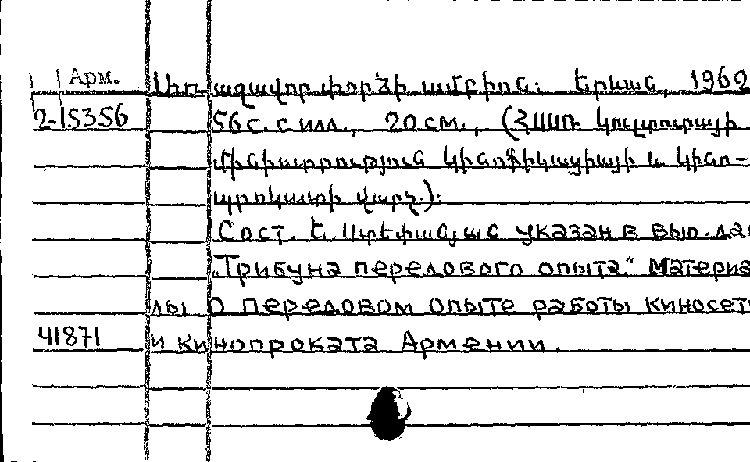 Арм. Առաջավոր փորձի ամբիոն: Երևան, 1969
2-15356 56 с. с илл., 20 см., (ՀՍՍՌ կուլտուրայի
մինիստրություն կինոֆիկացիայի և կինո-
պրոկատի վարչ.):
Сост. Е. Ստեփանյան указан в вып. да
„Трибуна передового опыта." Материа
лы о передовом опыте работы киносет
41871 и кинопроката Армении.